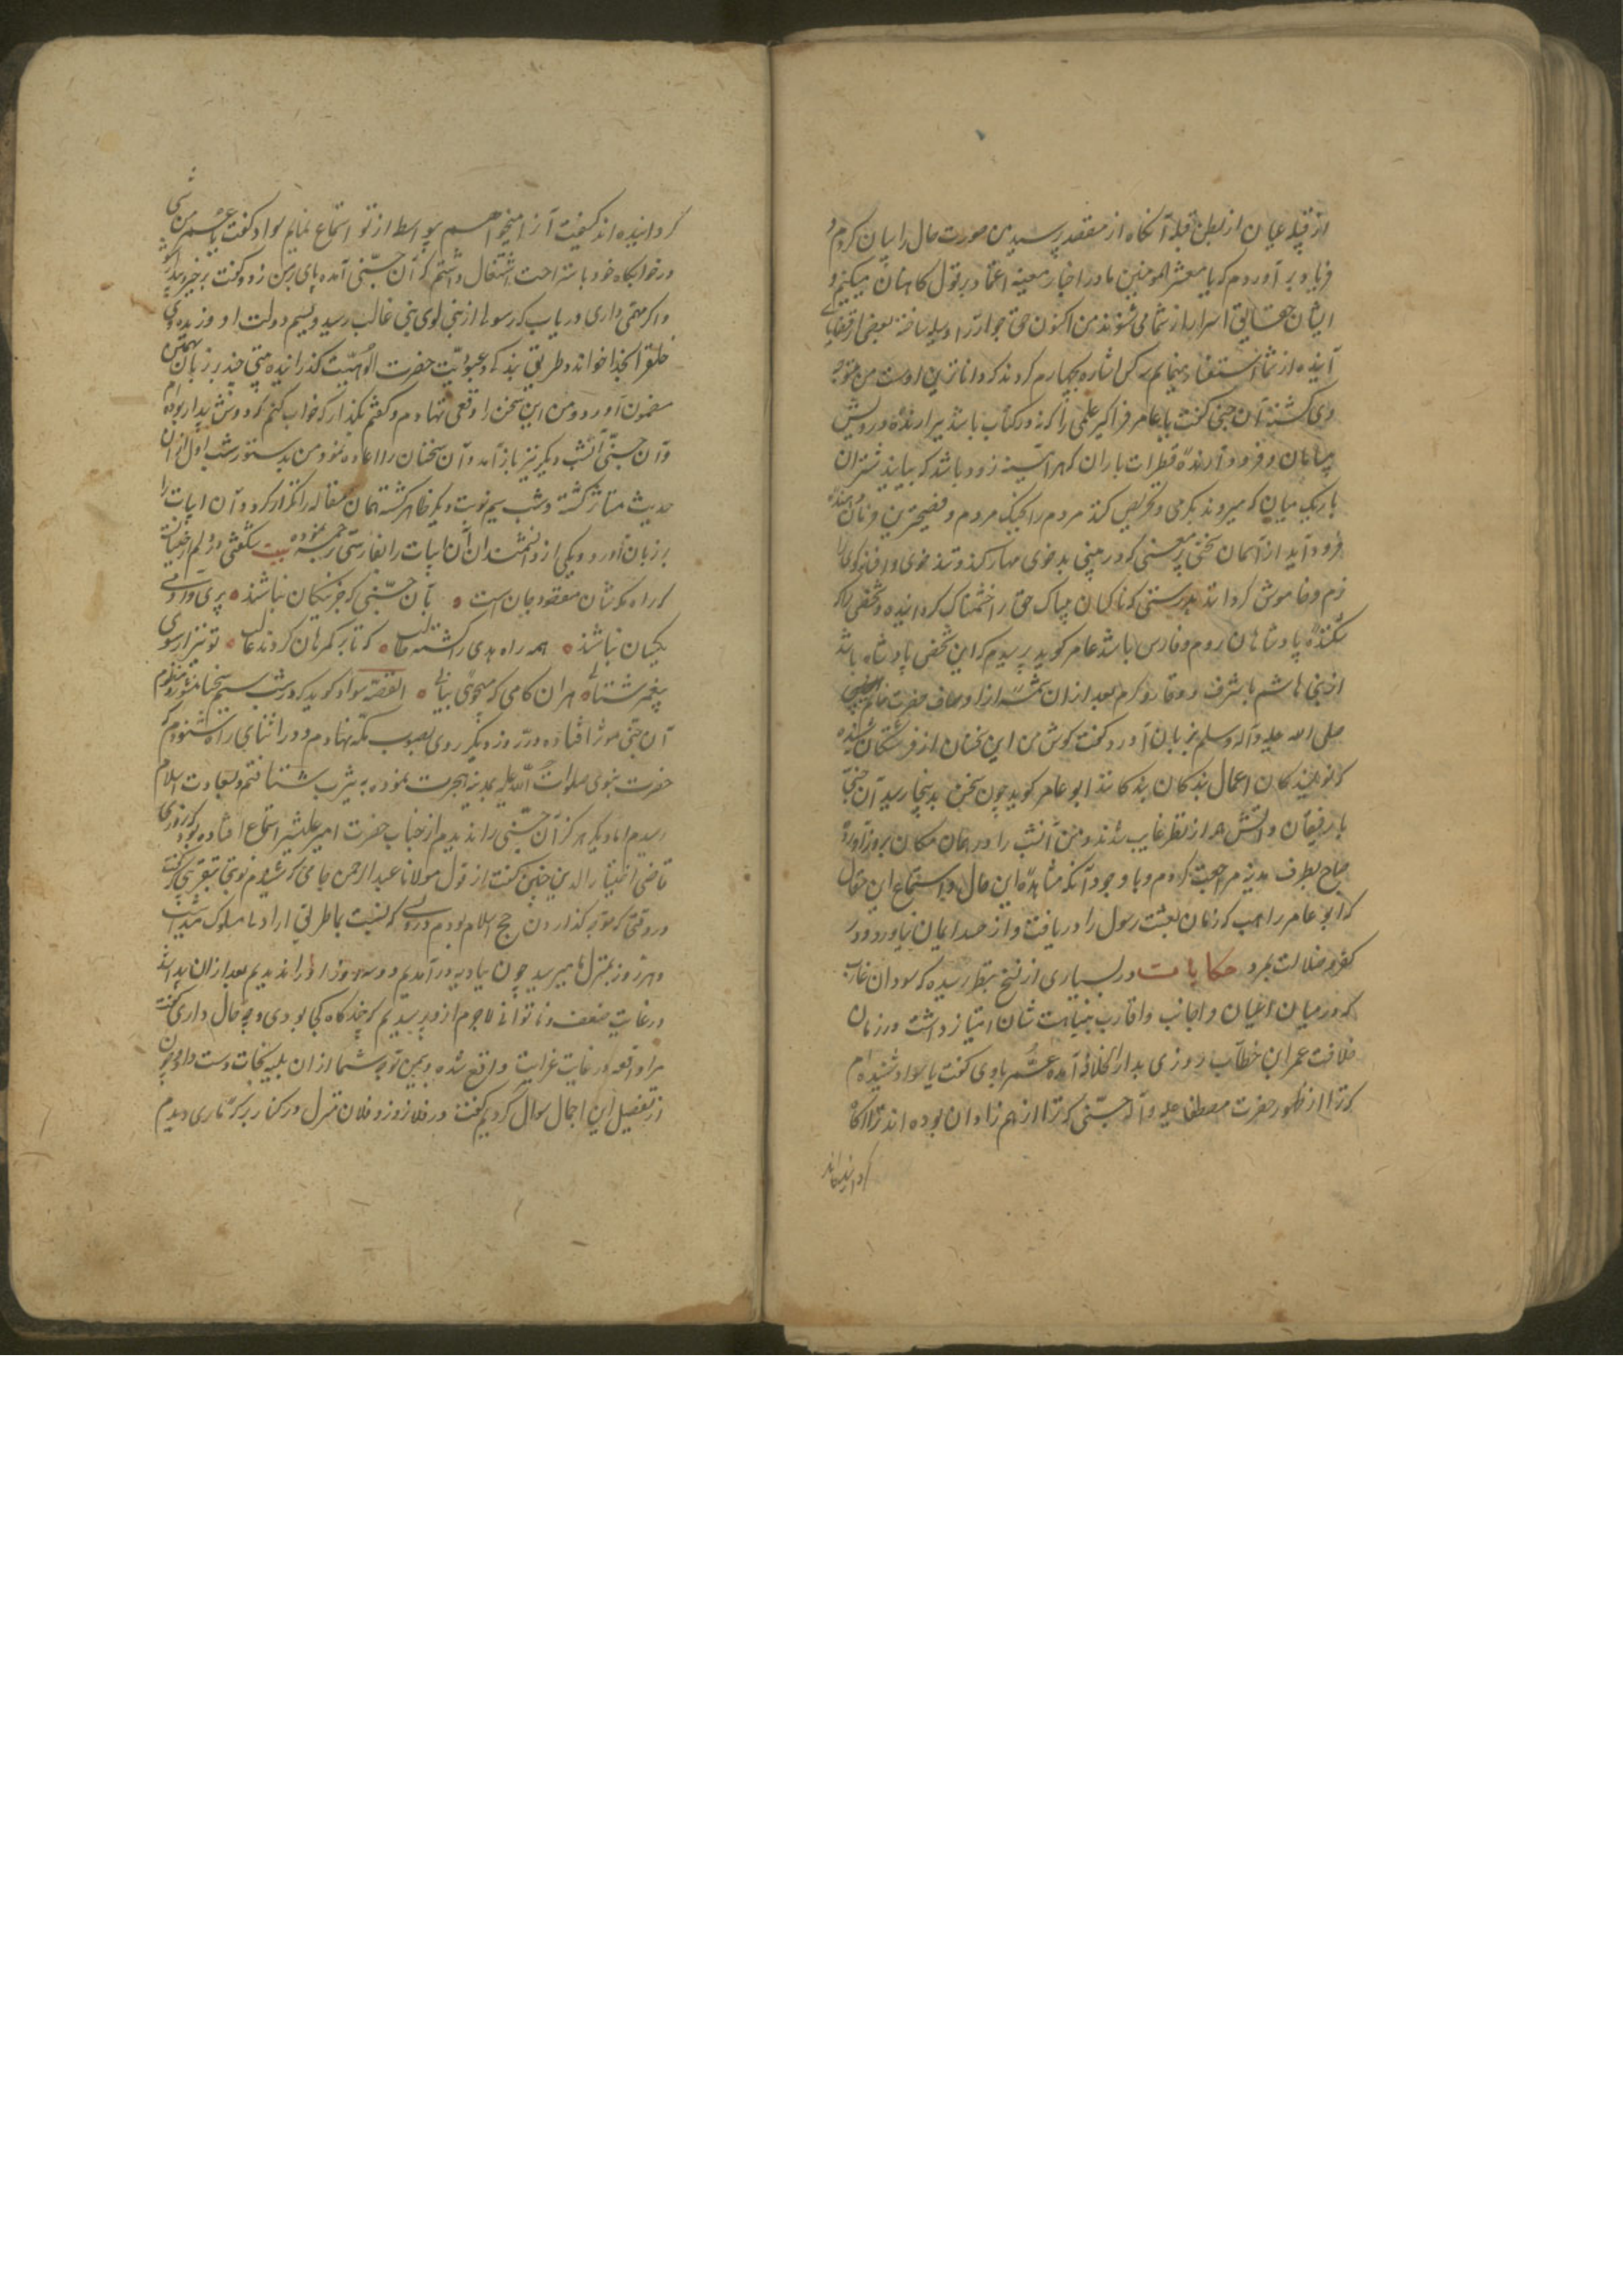 از قبیله عیان از بطن قبله آنگاه از مقصد پرسید من صورت حال را بیان کردم و
فریاد بر آوردم که یا معشر المومنین ما در اخبار معینه اعتماد بر قول کاهنان میکنیم و
ایشان حقایق اسرار از شما می شنوند من اکنون حق جوار ترا وسیله ساخته بعضی از قضایای
آینده از شما استفاده مینمایم هر سه کس اشاره بچهارم کردند که داناترین اوست من متوجه
وی کشته آن جنی کفت یا باعامر فرا کیر علمی را که در کتاب باشد بر آرنده درویش
بیابان و فرود آرنده قطرات باران که هر آینه زود باشد که بیایند شتران
باریک میان که میروند بکرمی و تحریص کند مردم را بجنگ مردم و فصیحترین فرمان دهنده
فرود آید از آسمان سخنی پر معنی که در بینی بدخوی مهار کند و تندخوی و افسانه کوی را
نرم و خاموش کرداند بدرستی که ناکهان بیباک حق را خشمناک کردانیده و شخصی را که
شکننده پادشاهان روم و فارس باشد عامر کوید پرسیدم که این شخص پادشاه باشد
از بنی هاشم با شرف و وقار و کرم بعد از آن شمه از اوصاف حضرت خاتم
صلی الله علیه و آله و سلم بزبان آورد و کفت کوش من این سخنان از فرشتکان شنیده
که نویسندکان اعمال بندکان بندکانند ابو عامر کوید چون سخن بدینجا رسید آن جنی
با رفیقان و آتش هم از نظر غایب شدند و من آنشب را در همان مکان بروز آورده
صباح بطرف مدینه مراجعت کردم و با وجود آنکه مشاهده این حال و استماع این مقال
که ابو عامر راهب که زمان بعثت رسول را دریافت و از حسد ایمان نیاورد و در
کفر و ضلالت بمرد حکایات در بسیاری از نسخ بنظر رسیده که سواد بن قارب
که در میان اعیان و اجانب و اقارب بنباهت شان امتیاز داشت در زمان
خلافت عمر ابن خطاب روزی بدار الخلافه آمد عمر باوی کفت یا سواد شنیده ام
که ترا از ظهور حضرت مصطفی علیه و آله جنی که ترا از همزادان بوده اند ترا آکاه
کردانیده اند
کردانیده اند کیفیت آنرا میخواهم بیواسطه از تو استماع نمایم سواد کفت یا عمر من شبی
در خوابکاه خود باستراحت اشتغال داشتم که آن جنی آمده پای بر من زد و کفت برخیز و بیدار شو
و اکر فهمی داری دریاب که رسول از بنی لوی بن غالب رسید و نسیم دولت او وزیده
خلق را بخدا خوانده و طریق بندکی و عبودیت حضرت الوهیت کذرانیده بیتی چند بر زبان بهمین
مضمون آورد و من این سخن را وقعی ننهادم و کفتم بکذار که خواب کنم که دوش بیدار بوده ام
و آن جنی آنشب دیکر نیز باز آمد و آن سخنان را اعاده نمود و من بدستور شب اول از آن
حدیث متاثر نکشته و شب سیم نوبت دیکر ظاهر کشته همان مقاله را تکرار کرد و آن ابیات را
بر زبان آورد و یکی از دانشمندان آن ابیات را بفارسی ترجمه نموده بیت شکفتی در دلم از جنیانست
که راه مکه شان مقصود جان است بآن جنی که جز نیکان نباشند پری و آدمی
یکسان نباشند همه راه هدی را کشته طالب که تا بر کمرهان کردند غالب تو نیز از سوی
پیغمبر شتابی بهر آن کامی که میجوئی بیابی القصه سواد کوید که در شب سیم سخنان منثور و منظوم
آن جنی موثر افتاده در روز دیکر روی بصوب مکه نهادم و در اثنای راه شنودم که
حضرت نبوی صلوات الله علیه بمدینه هجرت نموده به یثرب شتافتم و بسعادت اسلام
رسیدم اما دیکر هرکز آن جنی را ندیدم از جناب حضرت امیر علیشیر استماع افتاده بود که روزی
قاضی اختیار الدین چنین کفت از قول مولانا عبد الرحمن جامی که شنیدم نوبتی بتقریبی کفت
در وقتی که متوجه کذاردن حج اسلام بودم درویشی که نسبت بما طریق ارادت سلوک میداشت
و هر روز بمنزل ما میرسید چون ببادیه در آمدیم دو سه روز او را ندیدیم بعد از آن پیدا شد
در غایت ضعف و ناتوانی لاجرم از وی پرسیدیم که چند کاه کجا بودی و چه حال داری کفت
مرا واقعه در غایت غرابت واقع شده و بیمن توجه شما از آن بلیه نجات دست داد چون
از تفصیل این اجمال سوال کردیم کفت در فلان روز و فلان منزل در کنار برکه ماری دیدم